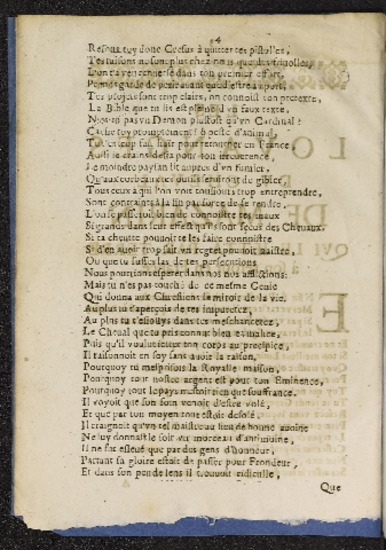 4
Resous toy donc Cresus à quitter tes pistolles,
Tes raisons ne sont plus chez nous que des frivolles,
L'on t'a veu renuersé dans ton premier effort,
Prens garde de perir auant qu'estre à port,
Tes projets sont trop clairs, on connoist ton pretexte,
La Bible que tu lis est pleine d'vn faux texte,
N'es-tu pas vn Demon plustost qu'vn Cardinal?
Cache toy promptement ô peste d'animal,
Tu as trop fait pour retourner en France,
Aussi je crains desia pour ton irreuerence,
Le moindre paysan lit aupres d'vn fumier,
Qu'aux corbeaux tes seruiront de gibier,
Tous ceux à qui l'on voit tousiours trop entreprendre,
Sont contraints à la fin par force de se rendre,
L'on se passe bien de connoistre tes maux
Si grands dans leur effect qu'ils sont secus des Cheuaux.
Si ta cheutte pouuoit les faire connoistre
Si d'en auoir trop fait vn regret pouuoit naistre,
Ou que tu fusses las de tes persecutions
Nous pourrions esperer dans nos afflictions:
Mais tu n'es pas touché de ce mesme Genie
Qui donna aux Chrestiens le miroir de la vie,
Au plus tu t'aperçois de tes impuretez,
Au plus tu t'esioüys dans tes meschancetez,
Le Cheual que tu pris connut bien ta malice,
Puis qu'il voulut ietter ton corps au precipice,
Il raisonnoit en soy sans auoir la raison,
Pourquoy tu mesprisois la Royalle maison,
Pourquoy tout nostre argent est pour ton Eminence,
Pourquoy tout le pays n'estoit rien que souffrance.
Il voyoit que son foin venoit d'estre volé,
Et que par ton moyen tout estoit desolé.
Il craignoit qu'vn tel maistre au lieu de bonne auoine
Ne luy donnast le soir vn morceau d'antimoine,
Il ne fut esleué que par des gens d'honneur,
Partant sa gloire estoit de passer pour Frondeur,
Et dans son pende lens il trouuoit ridicule,
Que